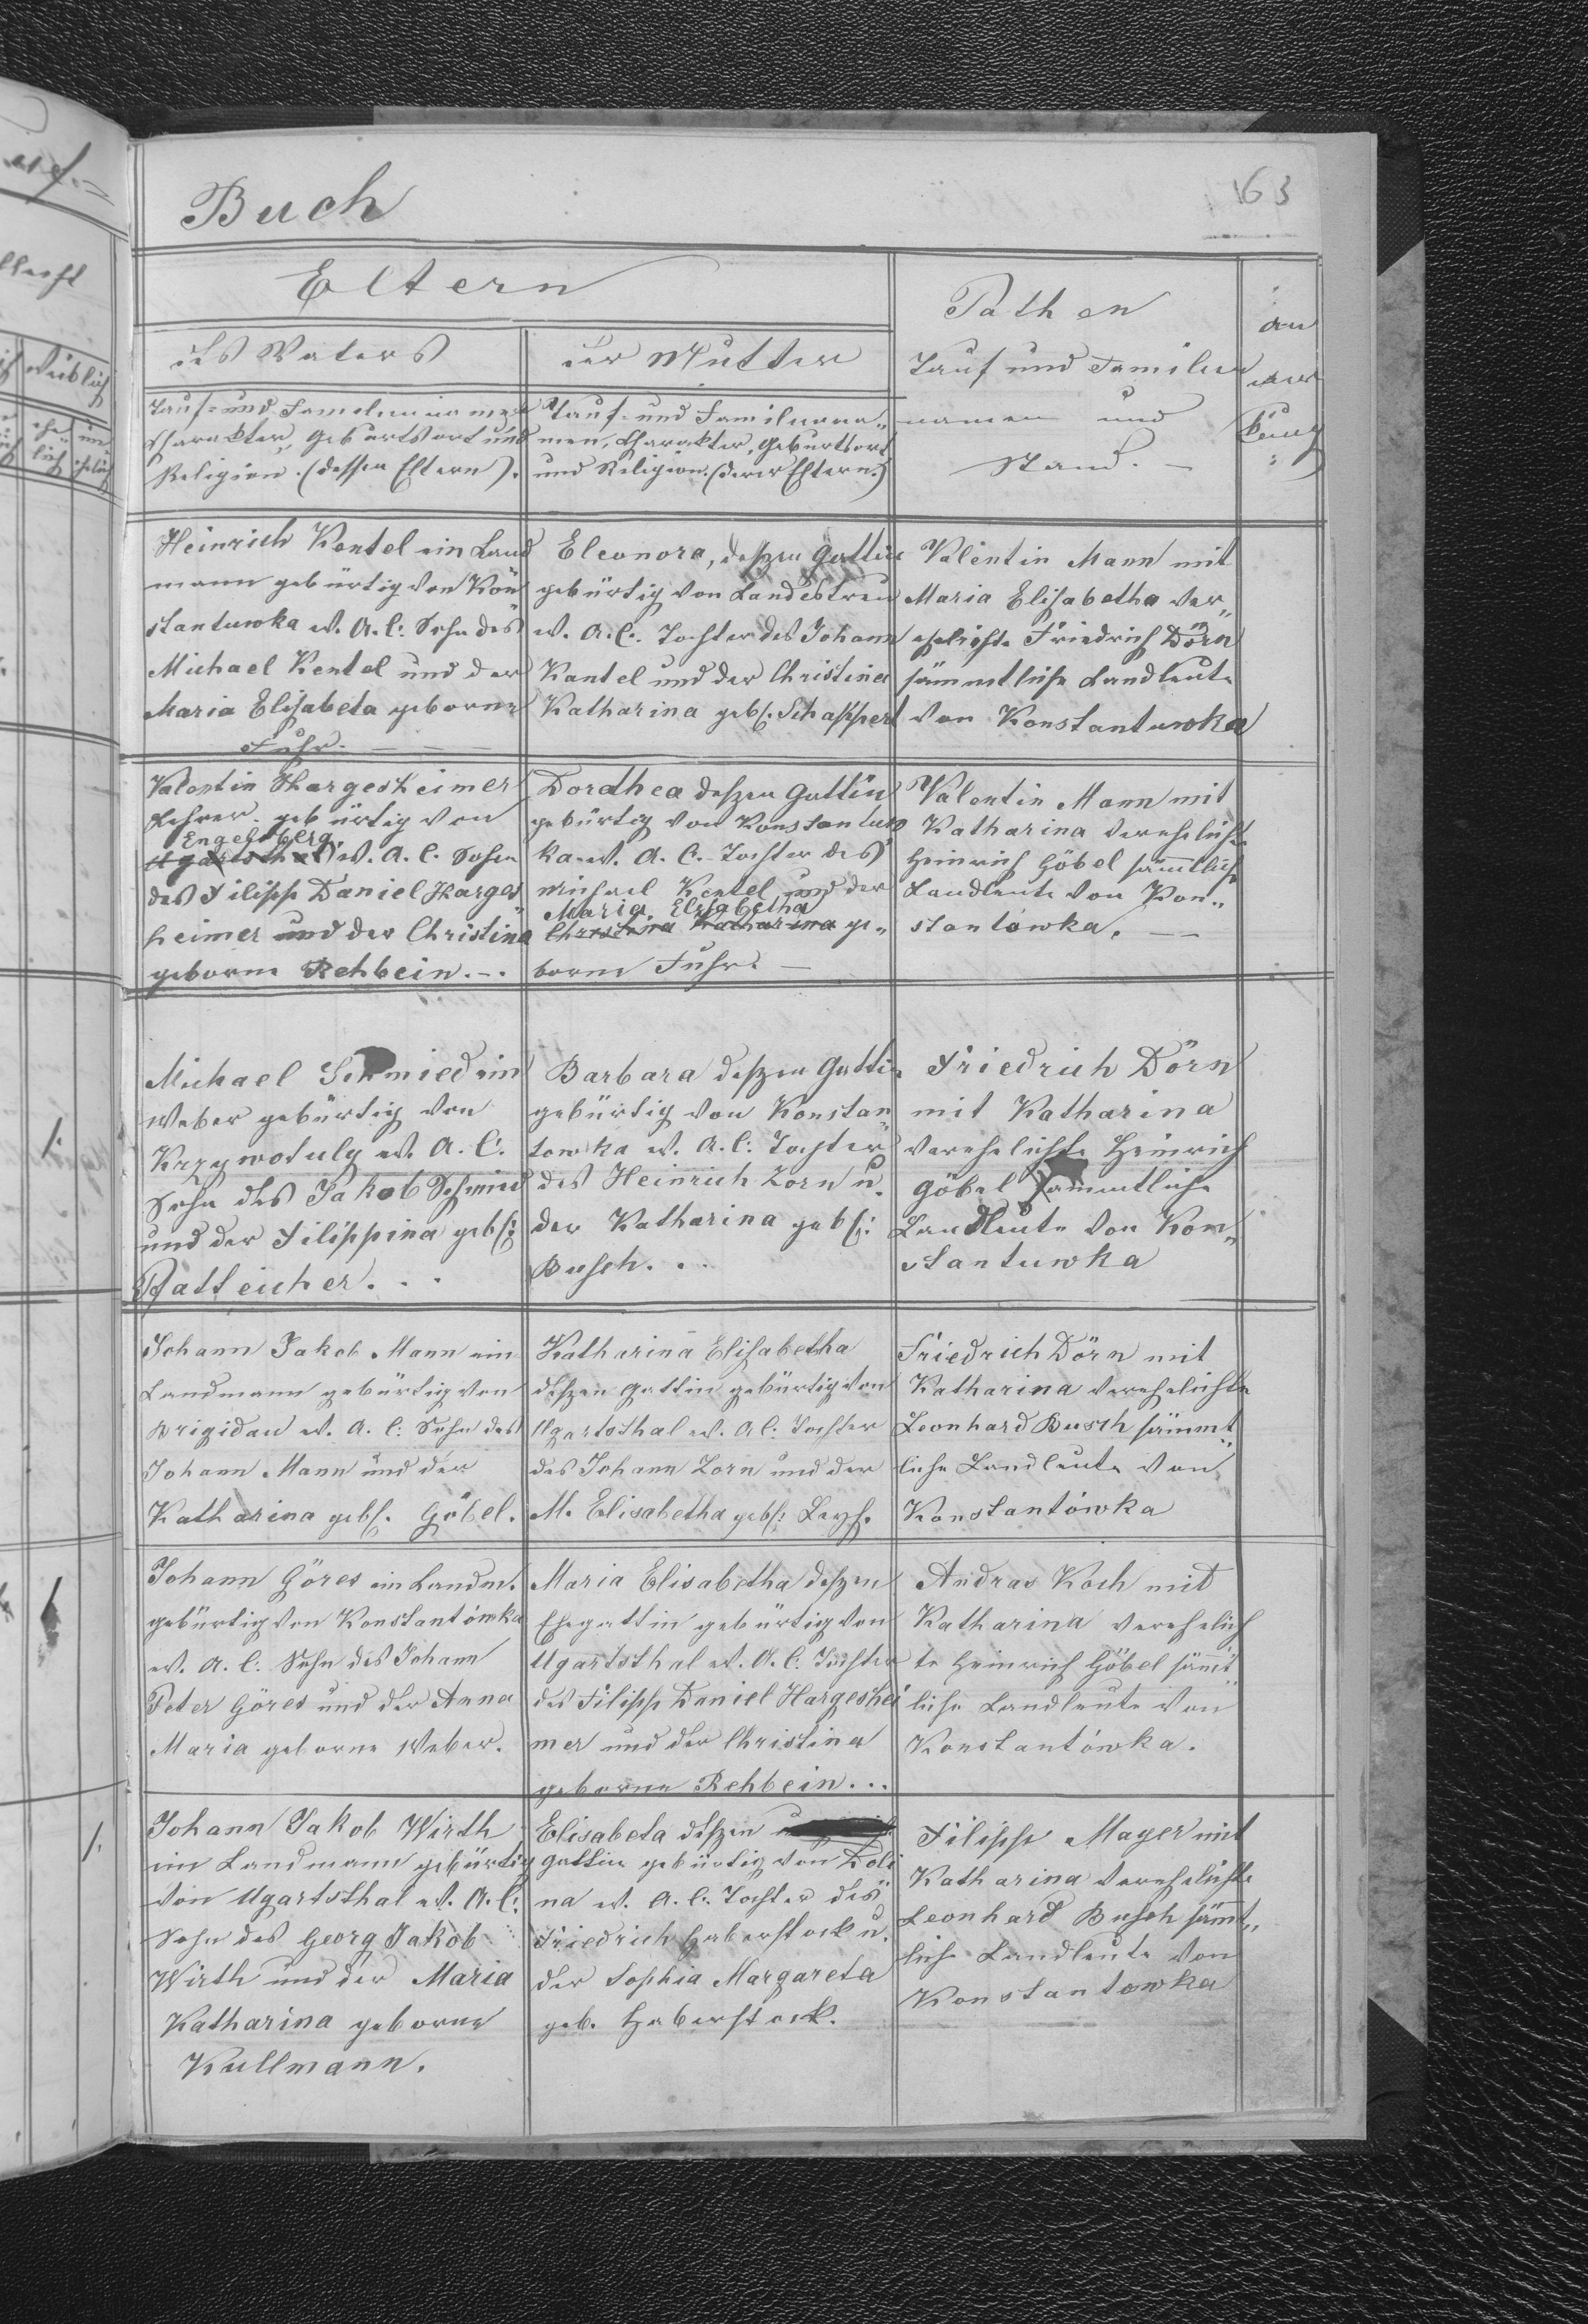 Buch
163
Eltern
Pathen
An
des Vaters
der Mutter
Tauf und Familien
mer
Tauf- und Familiennamen
Charakter, Geburtsort und
Religion (dessen Eltern).
Tauf- und Familienna„
men, Charakter, Geburtsort
und Religion. (derer Eltern.)
namen und
Stand. —
kung
weiblich
ehe
lich
un
ehelich
Heinrich Kentel ein Land
mann gebürtig von Kon
stantuwka ev. A. C: Sohn des
Michael Kentel und der
Maria Elisabeta geborne
Fuhr. —
Eleonora, deßen Gattin
gebürtig von Landestreu
ev. A. C. Tochter des Johann
Kantel und der Christina
Katharina geb. Schappert
Valentin Mann mit
Maria Elisabetha ver„
ehelichte Friedrich Dörn
sämmtliche Landleute
von Konstantuwka
Valentin Hargesheimer
Lehrer gebürtig von
Engelsberg
Ugartsthal ev. A. C. Sohn
des Filipp Daniel Harges
heimer und der Christina
geborne Rehbein. -.
Dorothea deßen Gattin
gebürtig von Konstantuw
ka ev. A. C. Tochter des
Michael Kentel und der
Maria Elisabetha
Christina Katharina ge„
borne Fuhr. —
Valentin Mann mit
Katharina verehelichte
Heinrich Göbel sämmtliche
Landleute von Kon„
stantówka. —
Michael Schmied ein
Weber gebürtig von
Krzywotuly ev. A. C:
Sohn des Jakob Schmied
und der Filippina geb:
Ratteicher. . .
Barbara deßen Gattin
gebürtig von Konstan
towka ev. A. C: Tochter
des Heinrich Zorn u.
der Katharina geb:
Busch. . .
Friedrich Dörn
mit Katharina
verehelichte Heinrich
Göbel sammtliche
Landleute von Kon„
stantuwka
Johann Jakob Mann ein
Landmann gebürtig von
Brigidau ev. A. C: Sohn des
Johann Mann und der
Katharina geb. Göbel.
Katharina Elisabetha
deßen Gattin gebürtig von
Ugartsthal ev. A C: Tochter
des Johann Zorn und der
M. Elisabetha geb:
Friedrich Dörn mit
Katharina verehelichte
Leonhard Busch sämmt„
liche Landleute von
Konstantówka
Johann Göres ein Landm.
gebürtig von Konstantówka
ev. A. C: Sohn des Johann
Peter Göres und der Anna
Maria geborne Weber.
Maria Elisabetha deßen
Ehegattin gebürtig von
Ugartsthal ev. A. C: Tochter
des Filipp Daniel Hargeshei
mer und der Christina
geborne Rehbein. . .
Andras Koch mit
Katharina verehelich
te Heinrich Göbel sämt„
liche Landleute von
Konstantówka.
Johann Jakob Wirth
ein Landmann gebürtig
von Ugartsthal ev. A. C:
Sohn des Georg Jakob
Wirth und der Maria
Katharina geborne
Kullmann.
Elisabeta deßen
Gattin gebürtig von Doli
na ev. A. C: Tochter des
Friedrich Haberstock u.
der Sophia Margareta
geb. Haberstock.
Filipp Mayer mit
Katharina verehelichte
Leonhard Busch sämt„
liche Landleute von
Konstantowka